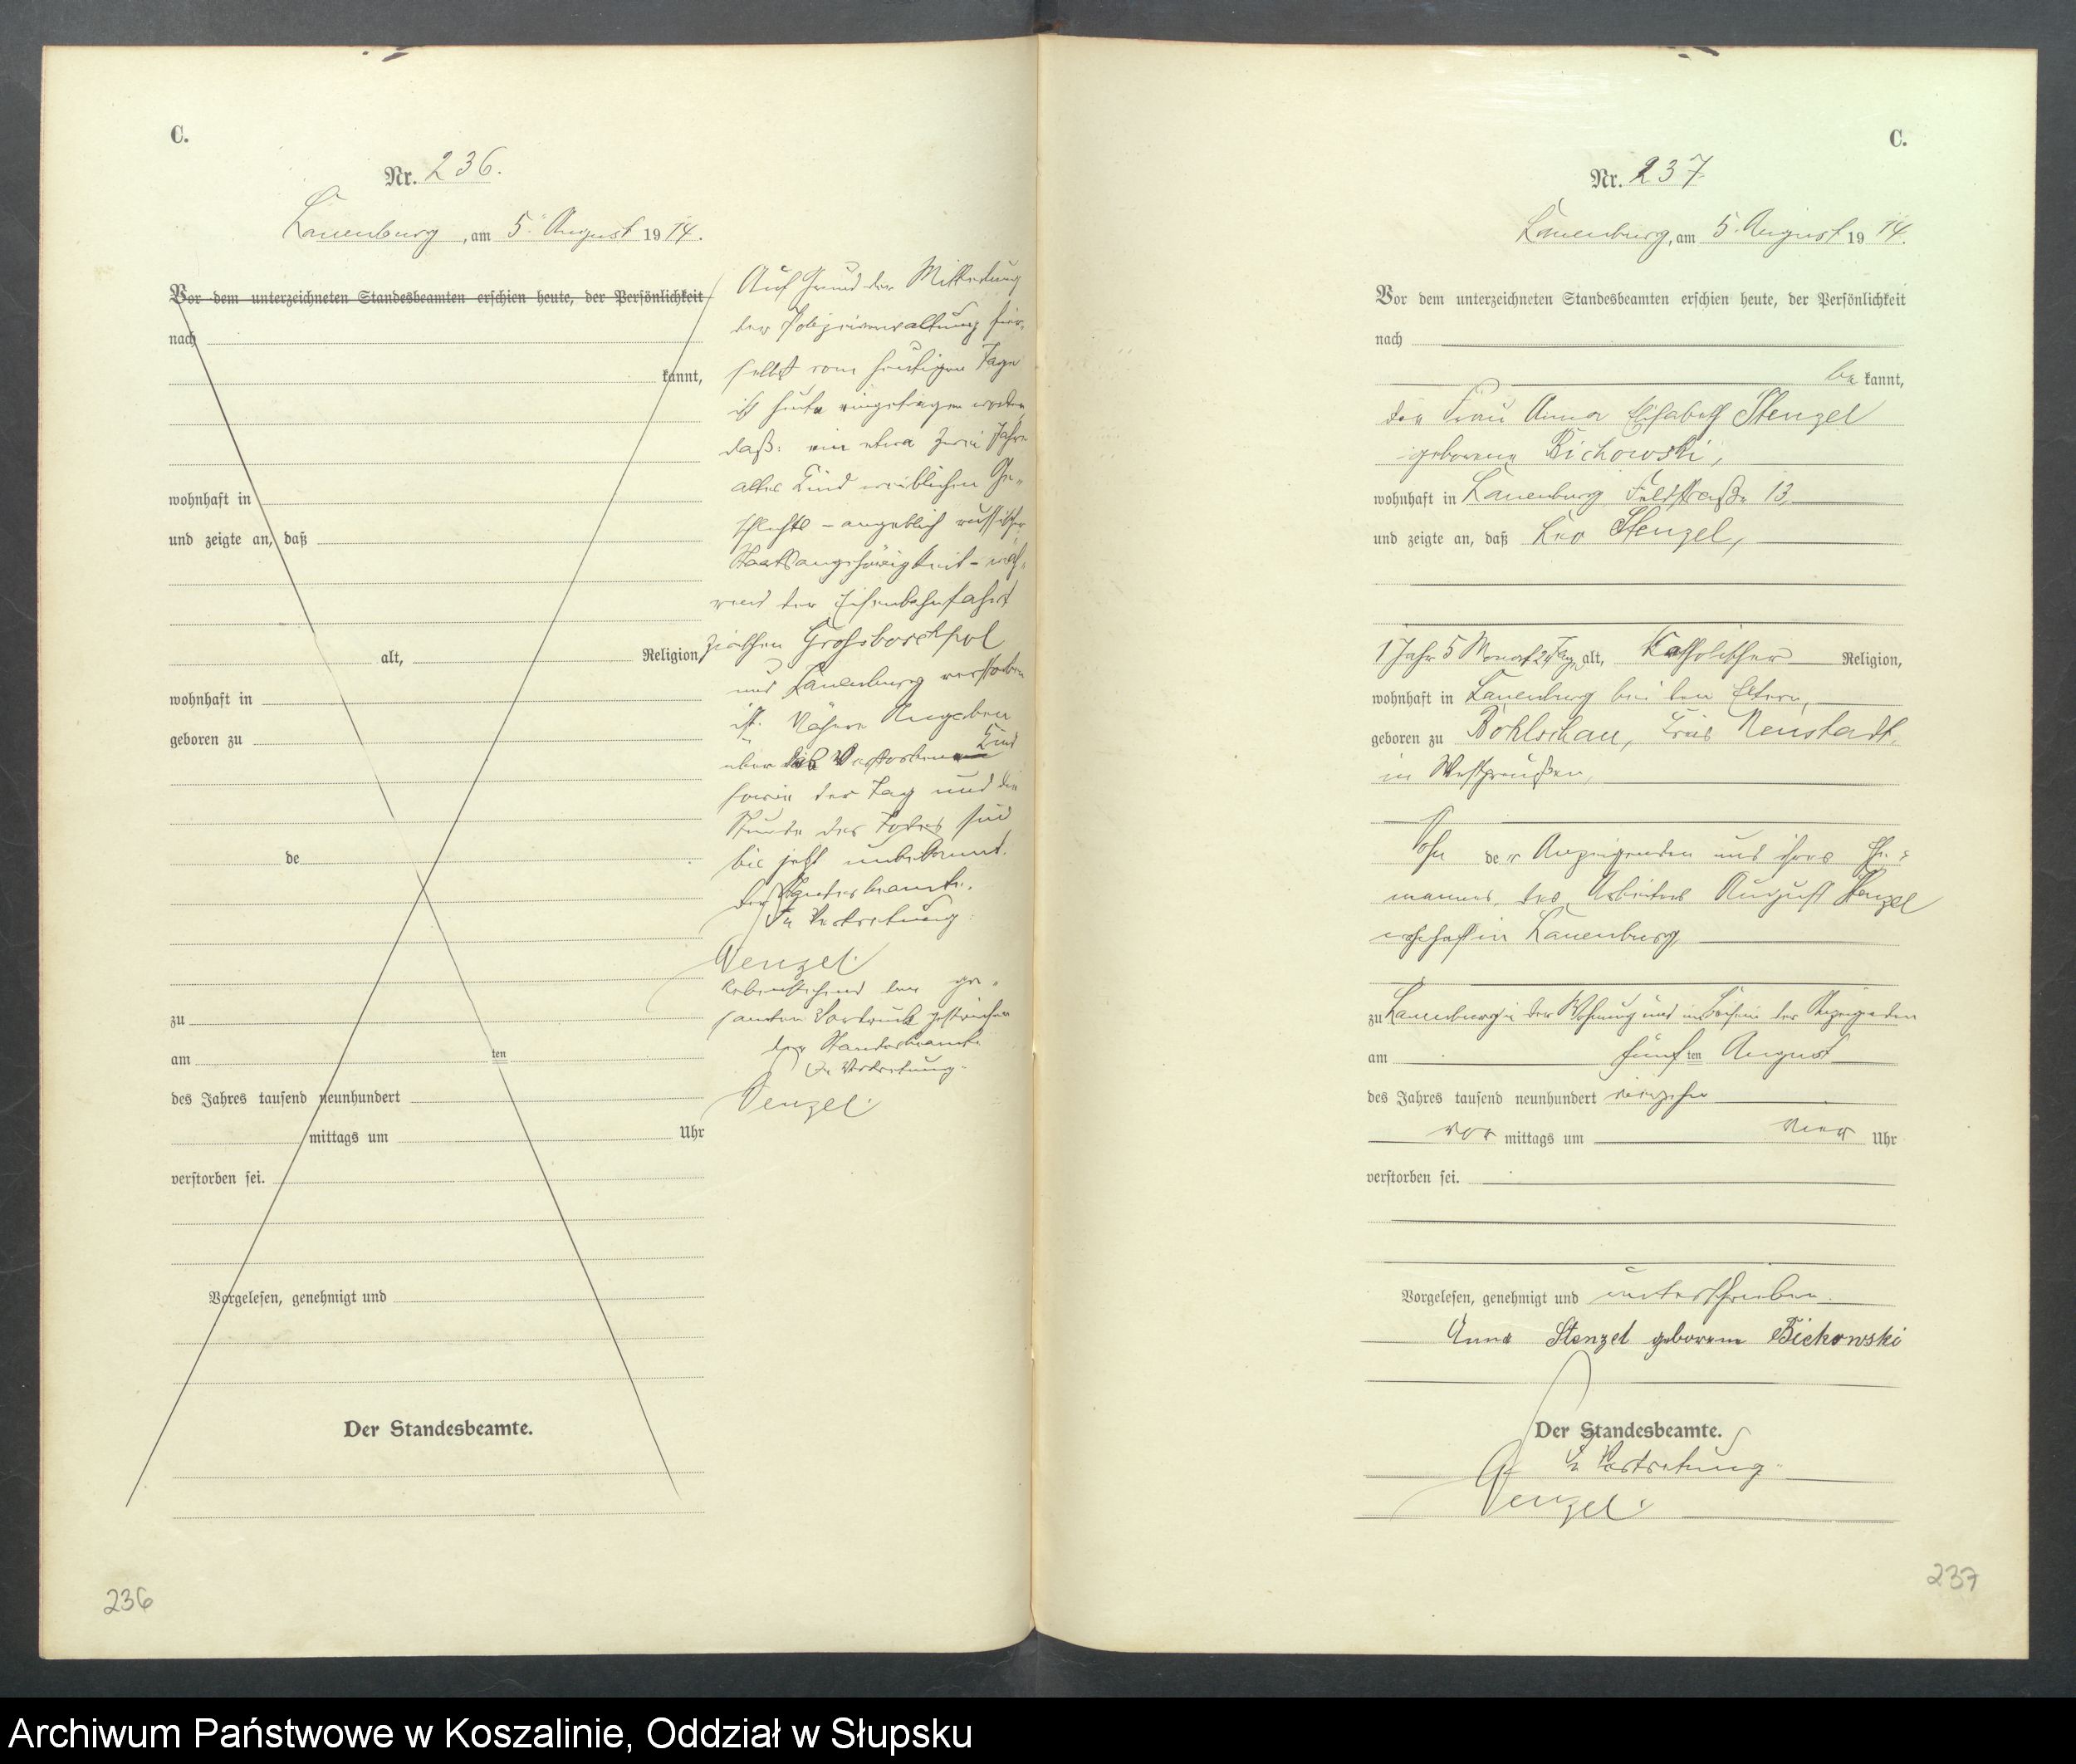 C.
Nr. 236.
Lauenburg, am 5. August 1914.
Vor dem unterzeichneten Standesbeamten erschien heute, der Persönlichkeit
nach
kannt,
wohnhaft in
und zeigte an, daß
alt, Religion,
wohnhaft in
geboren zu
de
zu
am ten
des Jahres tausend neunhundert
mittags um Uhr
verstorben sei.
Vorgelesen, genehmigt und
Der Standesbeamte.
Auf Grund der Mitteilung
der Polizeiverwaltung hier-
selbst vom heutigen Tage
ist heute eingetragen worden,
daß: ein etwa zwei Jahre
altes Kind weiblichen Ge-
schlechts - angeblich russischer
Staatsangehörigkeit - wäh-
rend der Eisenbahnfahrt
zwischen Grossboschpol
und Lauenburg verstorben
ist. Nähere Angaben
über das Verstorbene Kind
sowie der Tag und die
Stunde des Todes sind
bis jetzt unbekannt.
Der Standesbeamte.
In Vertretung:
Wenzel.
Nebenstehend den ge-
samten Vordruck gestrichen
Der Standesbeamte
In Vertretung.
Wenzel.
236
C.
Nr. 237
Lauenburg, am 5. August 1914.
Vor dem unterzeichneten Standesbeamten erschien heute, der Persönlichkeit
nach
be kannt,
die Frau Anna Elisabeth Stenzel
geborene Bichowski,
wohnhaft in Lauenburg Feldstraße 13
und zeigte an, daß Leo Stenzel,
1 Jahr 5 Monat 24 Tage alt, Katholischer Religion,
wohnhaft in Lauenburg bei den Eltern,
geboren zu Bohlschau, Kreis Neustadt,
in Westpreußen,
Sohn der Anzeigenden und ihres Ehe-
mannes, des Arbeiters August Stenzel
wohnhaft in Lauenburg
zu Lauenburg in der Wohnung und im Beisein der Anzeigenden
am fünften August
des Jahres tausend neunhundert vierzehn
vor mittags um vier Uhr
verstorben sei.
Vorgelesen, genehmigt und unterschrieben.
Anna Stenzel geborene Bichowski
Der Standesbeamte.
In Vertretung.
Wenzel.
237
Archiwum Państwowe w Koszalinie, Oddział w Słupsku